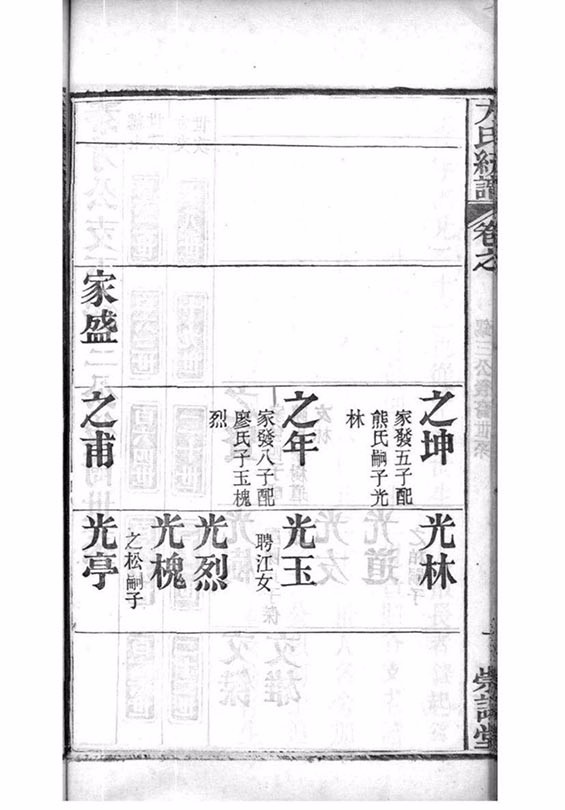 方氏統譜
卷之
崇
堂
之坤
家發五子配
熊氏嗣子光
林
光林
之年
家發八子配
廖氏子玉槐
烈
光玉
聘江女
光烈
光槐
之松嗣子
家盛
之甫
光亭